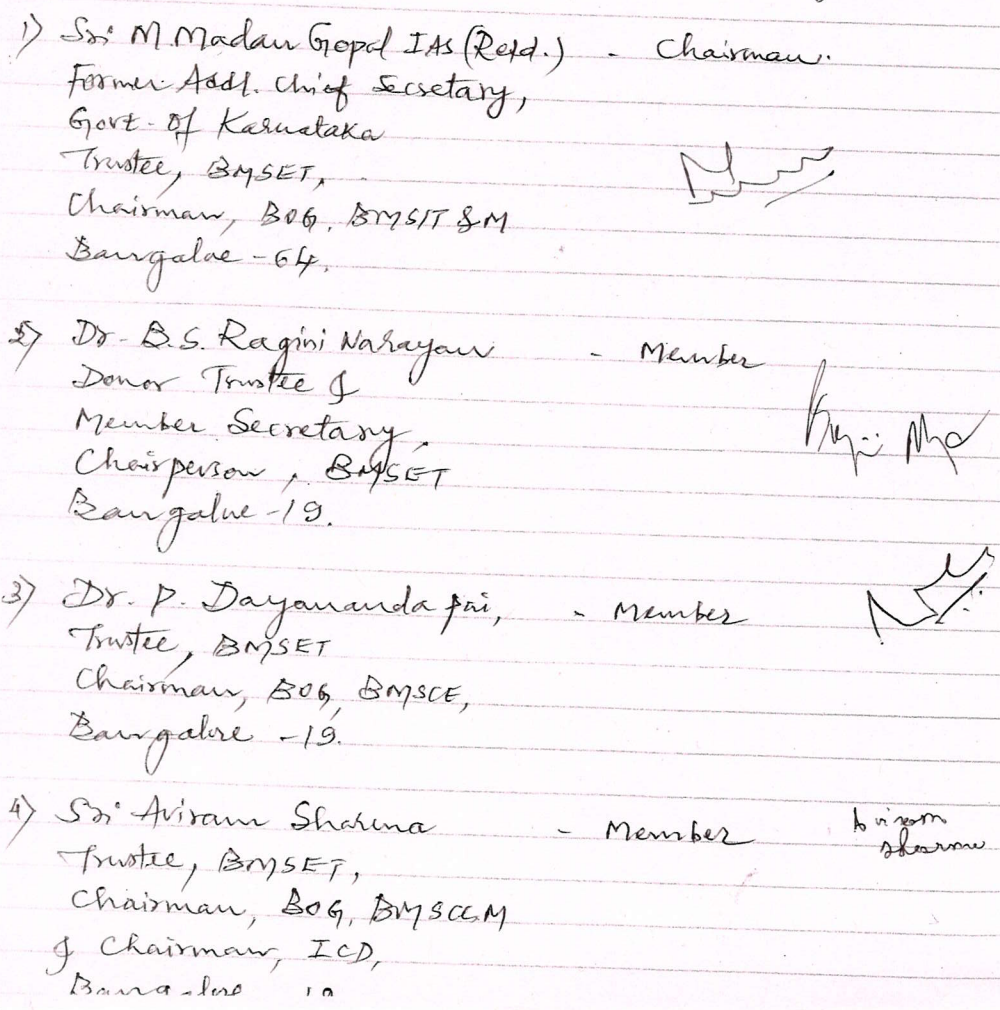 1) Sri M. Madan Gopal IAS (Retd.) - Chairman.
Former Addl. Chief Secretary,
Govt. of Karnataka
Trustee, BMSET,
Chairman, BOG, BMSIT & M
Bangalore - 64.
2) Dr. B.S. Ragini Narayan - Member
Donor Trustee &
Member Secretary,
Chairperson, BMSET
Bangalore - 19.
3) Dr. P. Dayananda Pai, - Member
Trustee, BMSET
Chairman, BOG, BMSCE,
Bangalore - 19.
4) Sri Aviram Sharma - Member Aviram
Sharma
Trustee, BMSET,
Chairman, BOG, BMSCCM
& Chairman, ICD,
Bangalore